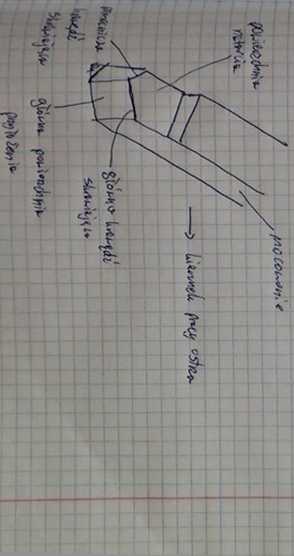 powierzchnia
natarcia
pomocnicza
krawędź
skrawająca
główna powierzchnia
przyłożenia
główna krawędź
skrawająca
mocowanie
→ kierunek pracy ostrza